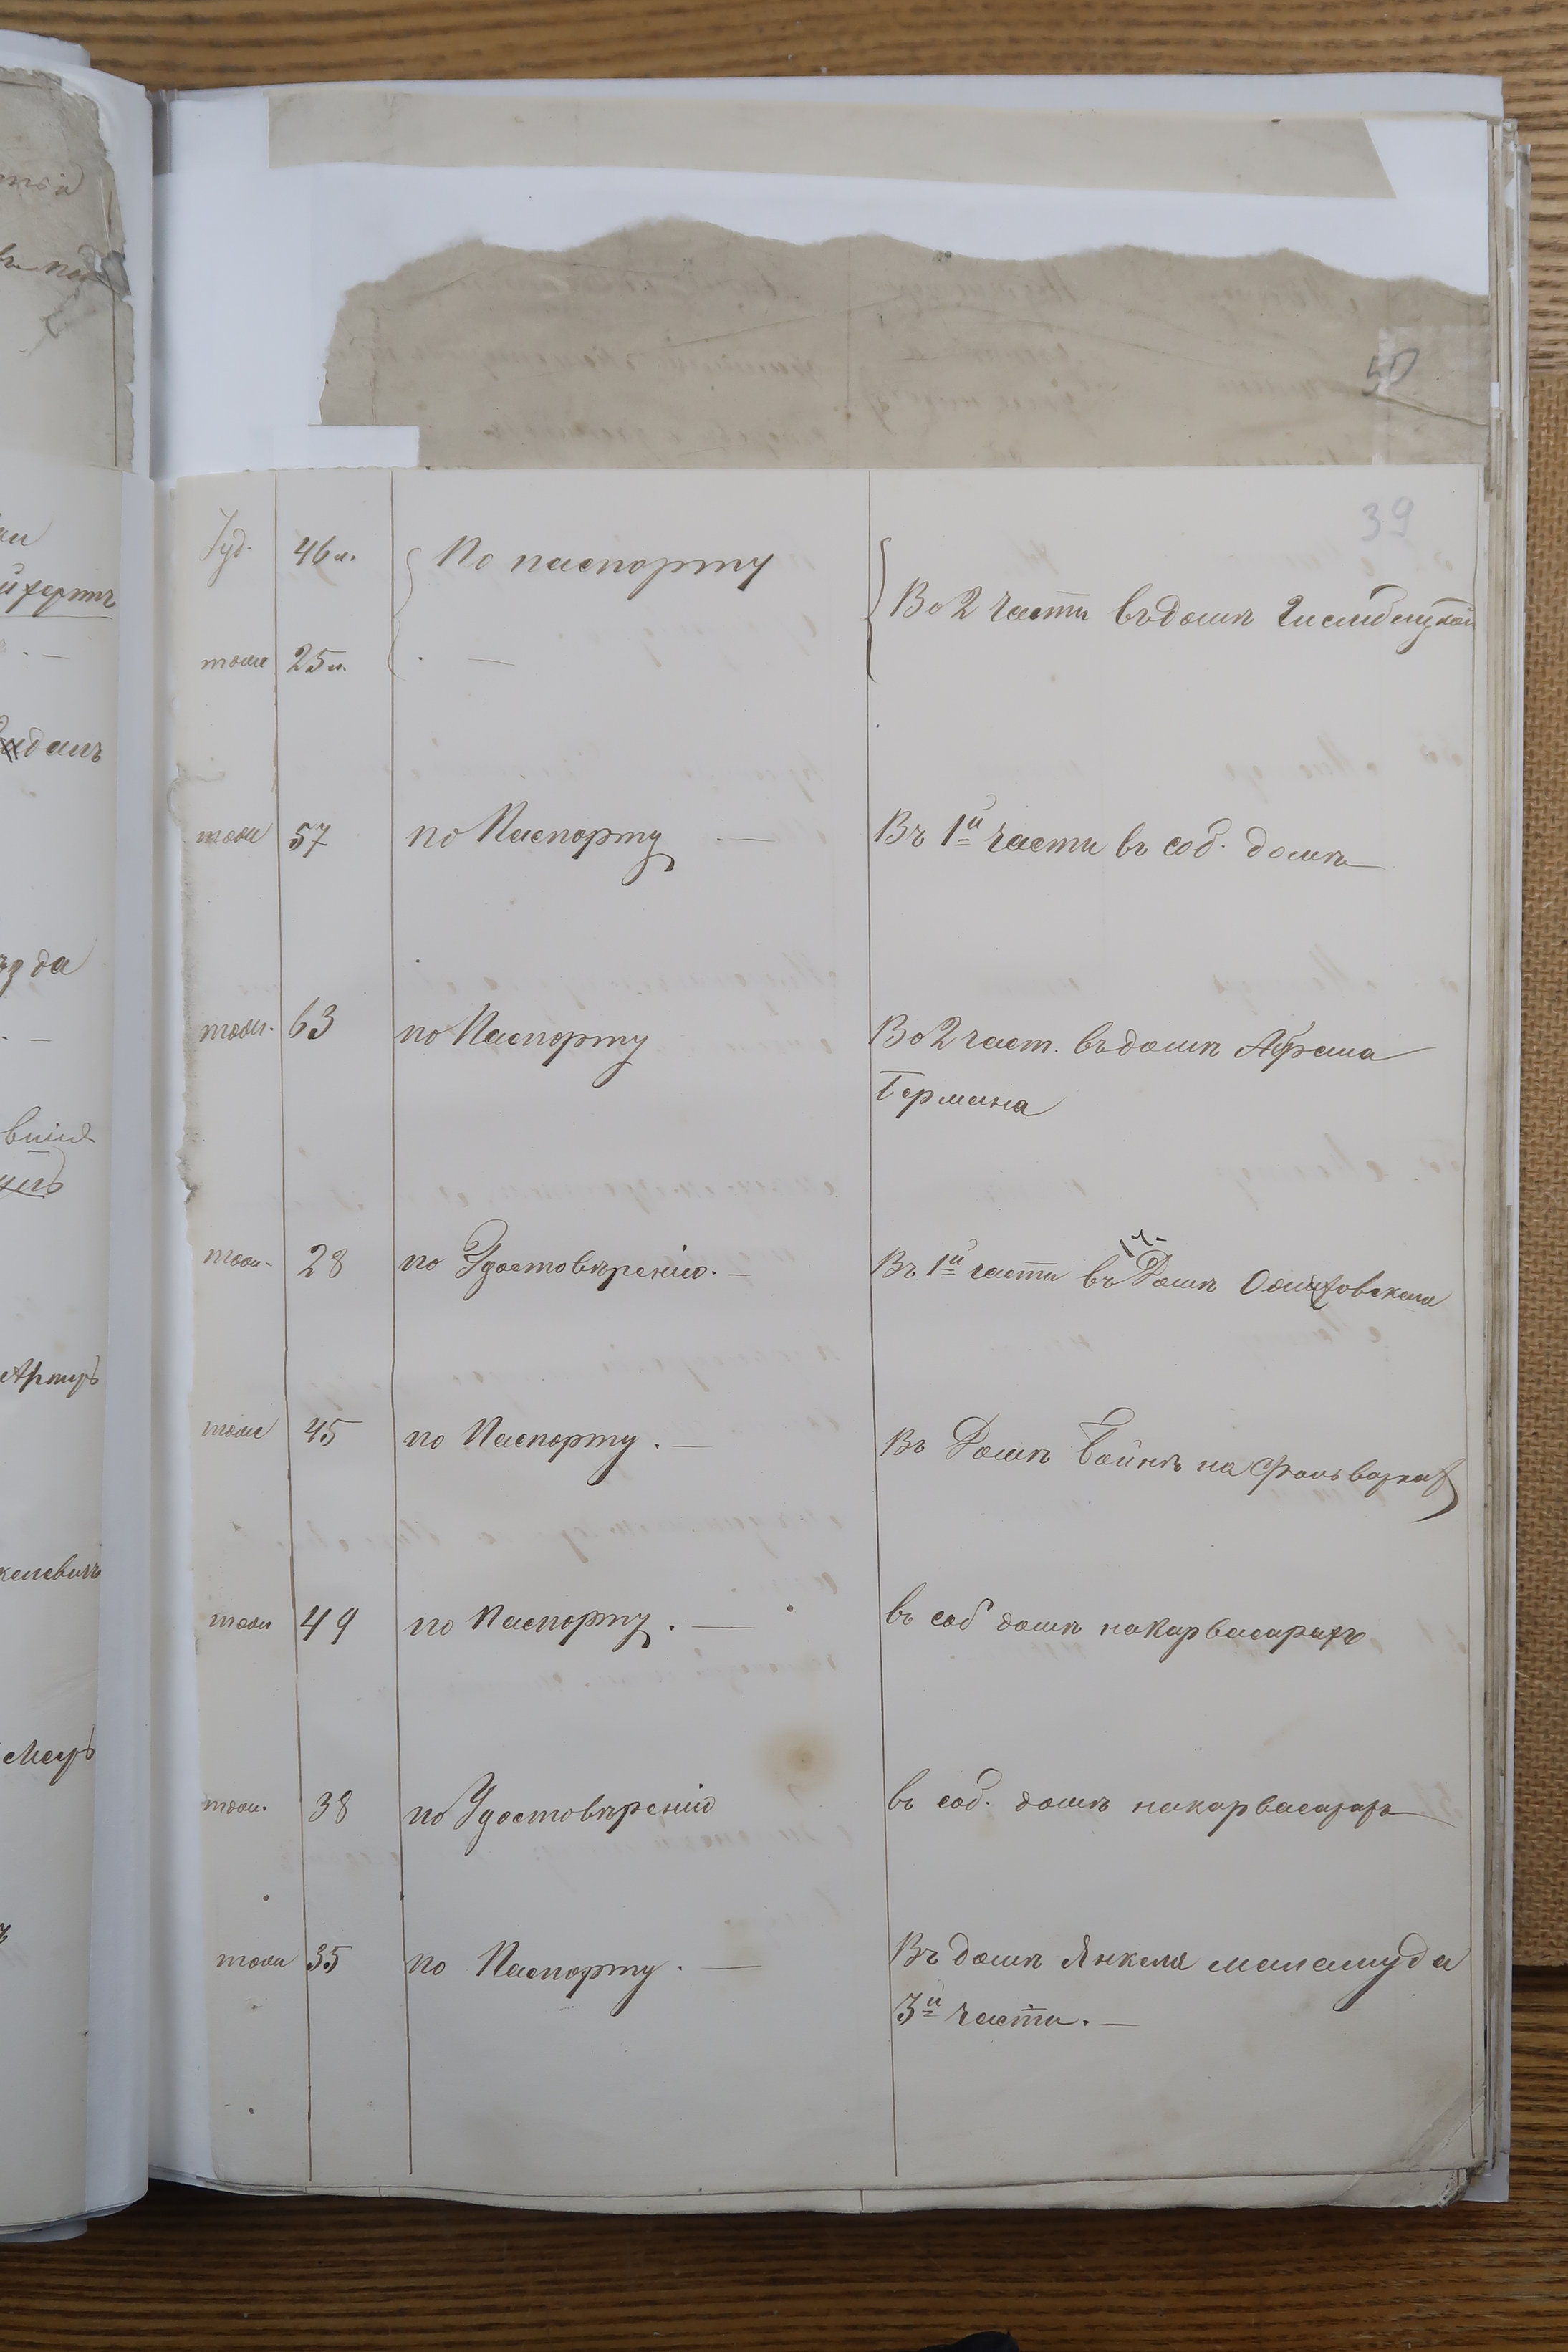 50
39
Іуд. 46 л. По паспорту Во 2 части въ домѣ
тоже 25 л. —
тоже 57 по Паспорту — Въ 1й части въ соб. домѣ
тоже 63 по Паспорту Во 2 част. въ домѣ Абрама
Германа
тоже 28 по Удостовѣренію. — Въ 1й части въ Домѣ
тоже 45 по Паспорту. — Въ Домѣ на Фольваркахъ
тоже 49 по Паспорту. — въ соб домѣ на Карвасарахъ
тоже 38 по Удостовѣренію въ соб. домѣ на карвасарахъ
тоже 35 по Паспорту. — Въ домѣ Янкеля меламуда
3й части. —